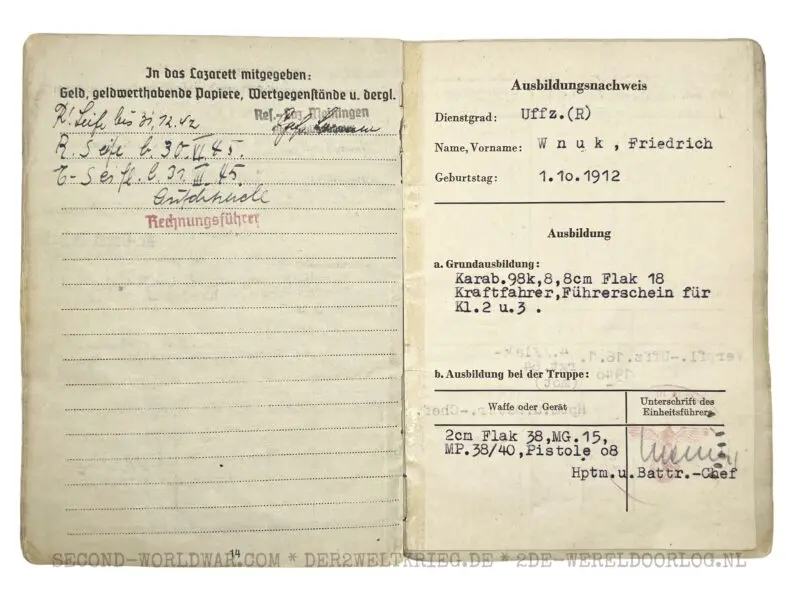 In das Lazarett mitgegeben:
Geld, geldwerthabende Papiere, Wertgegenstände u. dergl.
Res.-Laz. Meiningen
R. Seife bis 31.12.42
R. Seife b. 30.VI.45.
b. 31. 45.
Rechnungsführer
14
Ausbildungsnachweis
Dienstgrad: Uffz.(R)
Name, Vorname: Wnuk, Friedrich
Geburtstag: 1.10.1912
Ausbildung
a. Grundausbildung:
Karab.98k,8,8cm Flak 18
Kraftfahrer,Führerschein für
Kl.2 u.3 .
b. Ausbildung bei der Truppe:
Waffe oder Gerät
Unterschrift des
Einheitsführers
2cm Flak 38,MG.15,
MP.38/40,Pistole o8
Hptm.u.Battr.-Chef
SECOND-WORLDWAR.COM * DER2WELTKRIEG.DE * 2DE-WERELDOORLOG.NL